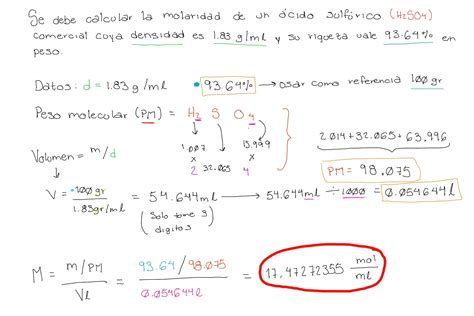 Se debe calcular la molaridad de un ácido sulfúrico (H2SO4)
comercial cuya densidad es 1.83 g/ml y su riqueza vale 93.64% en
peso.
Datos: d = 1.83 g/ml • 93.64% → usar como referencia 100 gr
Peso molecular (PM) = H2 S O4
1.007 15.999
x x
2 32.065 4
2.014+32.065+63.996
PM = 98.075
Volumen = m/d
V = 100gr / 1.83gr/ml = 54.644ml → 54.644ml ÷ 1000 = 0.054644l
(Solo tome 3
digitos)
M = m/PM / Vl = 93.64/98.075 / 0.054644l = 17.47272355 mol/ml